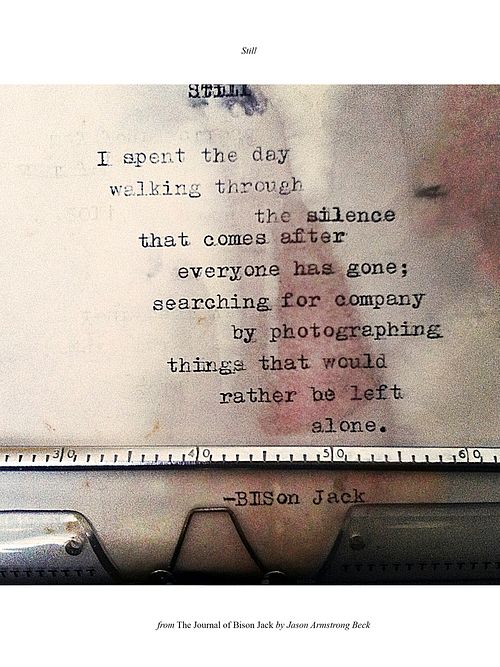 Still
STILL
I spent the day
walking through
the silence
that comes after
everyone has gone;
searching for company
by photographing
things that would
rather be left
alone.
30 40 50 60
-BIISon Jack
from The Journal of Bison Jack by Jason Armstrong Beck